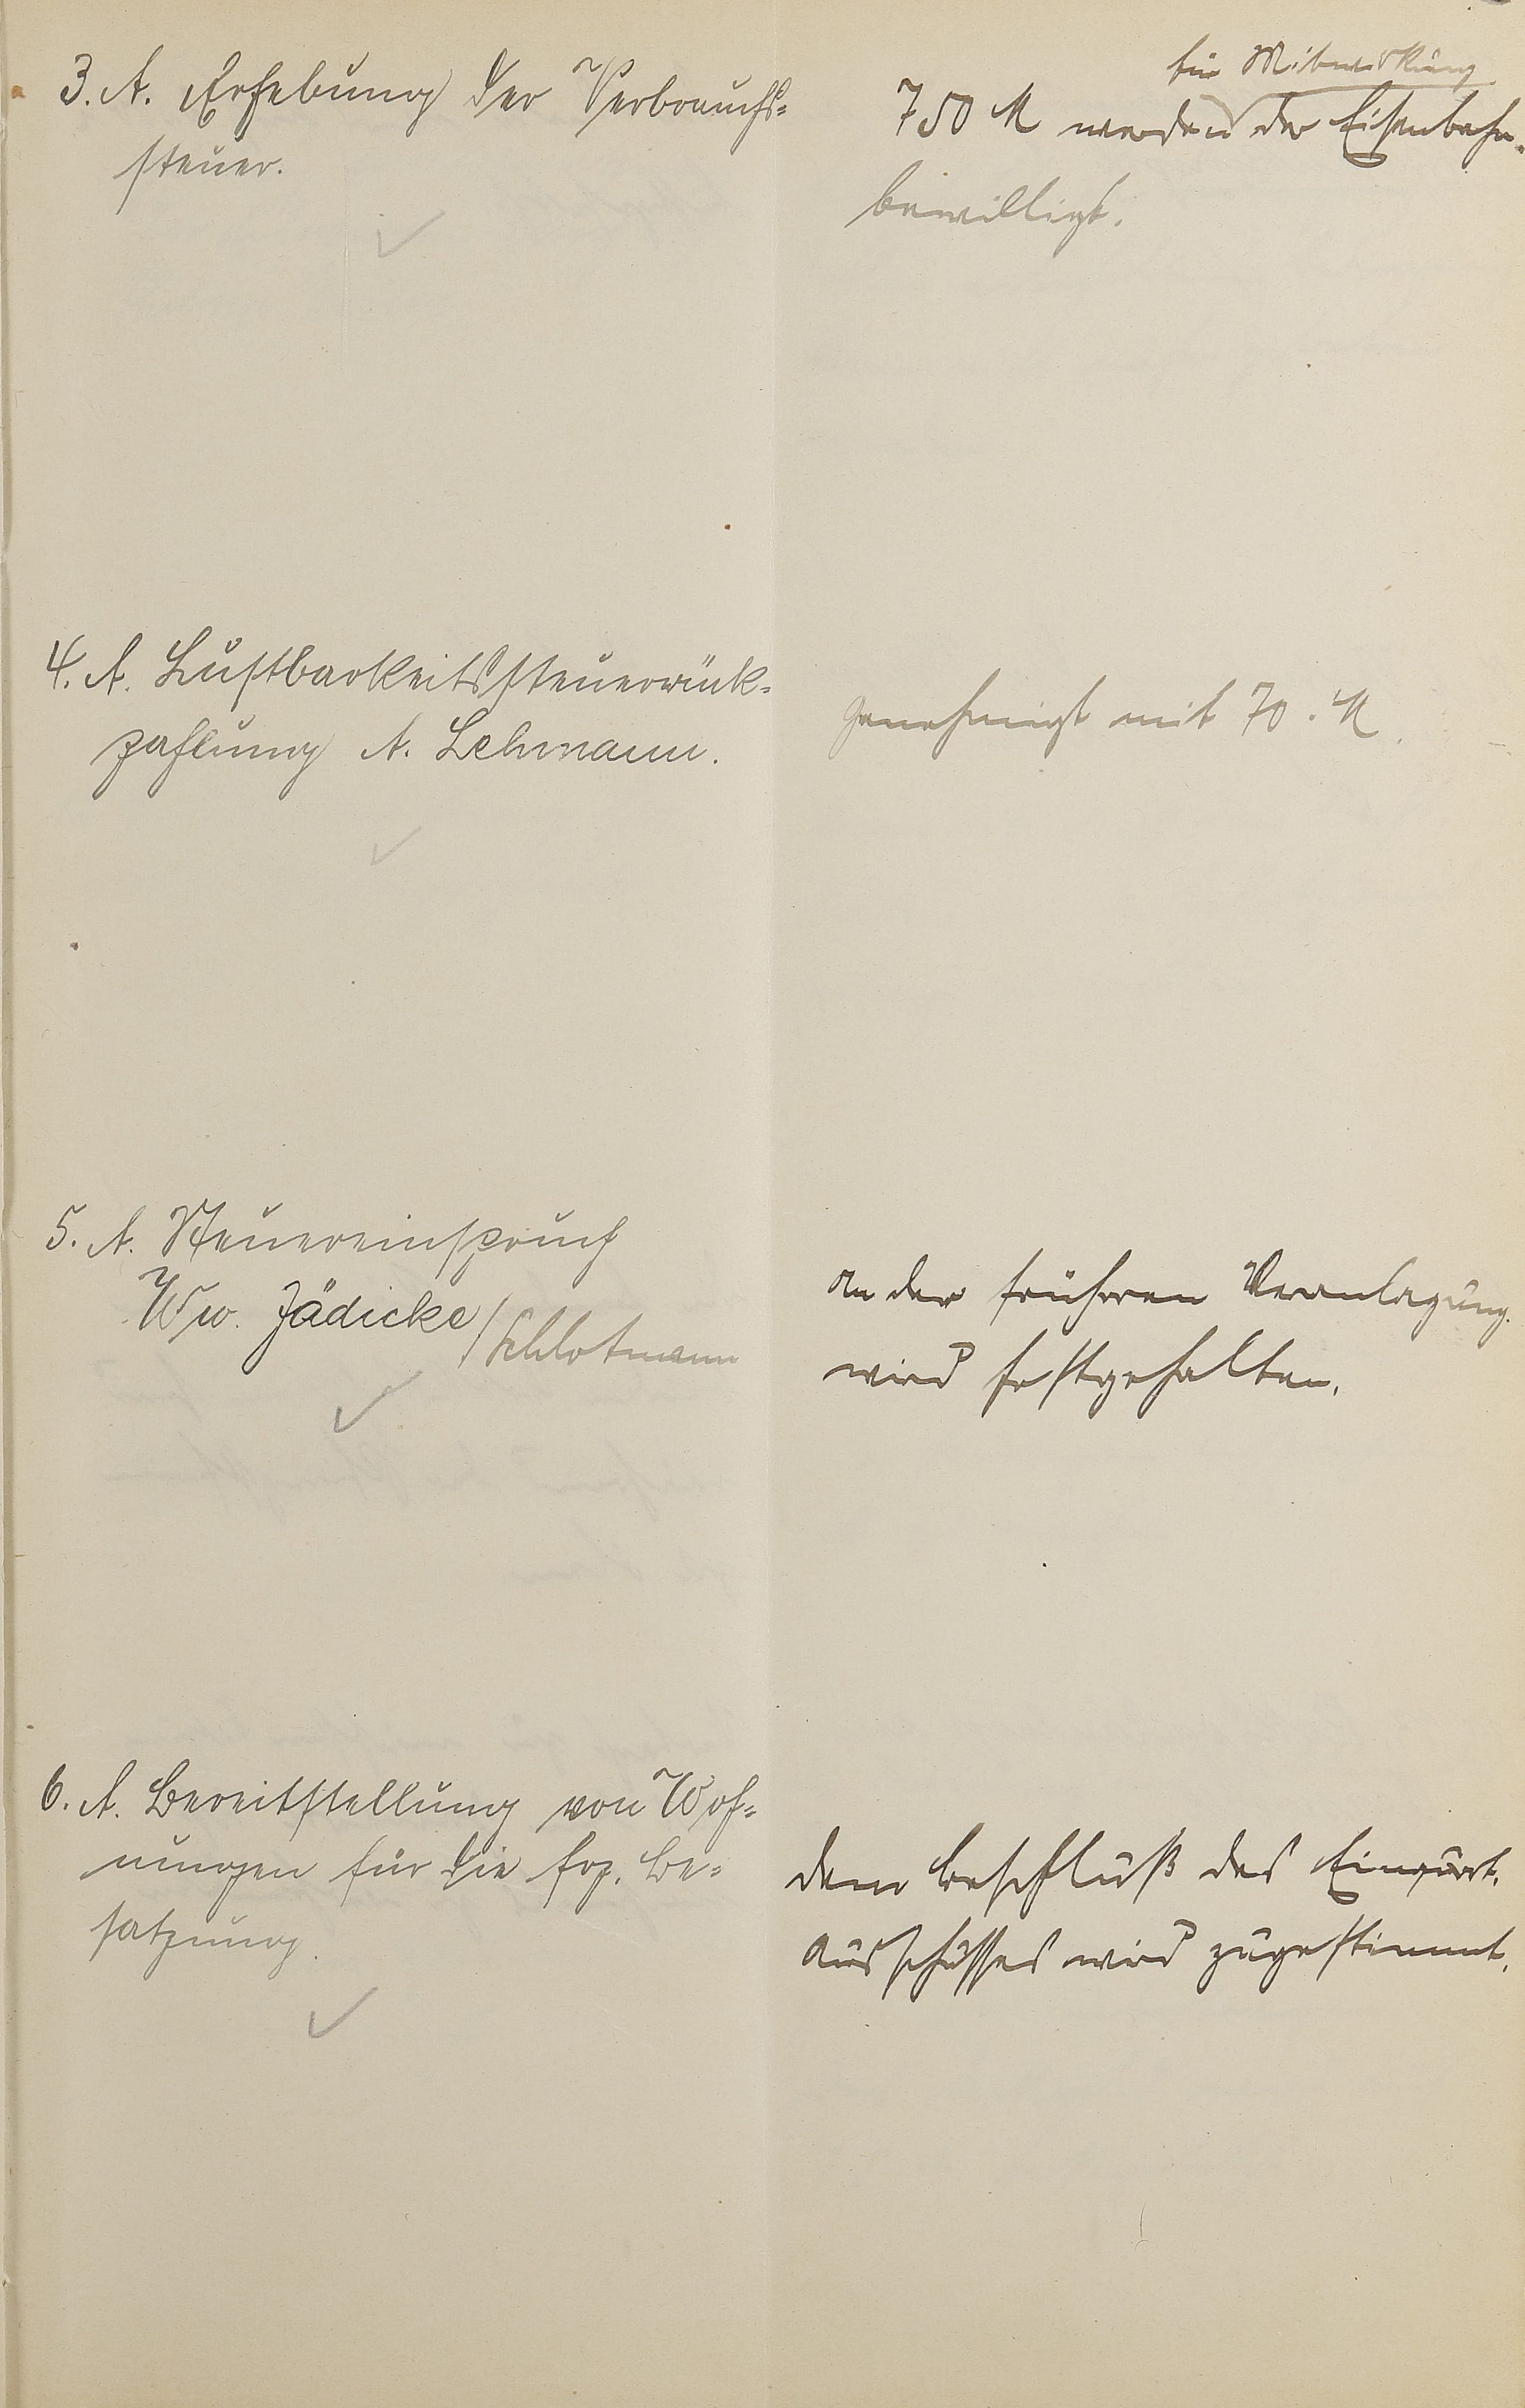 3. A. Erhebung der Verbrauchs-
steuer.
für Mitwirkung
750 M werden der Eisenbahn
bewilligt.
4. A. Lustbarkeitssteuerrück-
zahlung A. Lehmann.
genehmigt mit 70. M
5. A. Steuereinspruch
Ww. Jädicke / Schlotmann
An der früheren Veranlagung
wird festgehalten.
6. A. Bereitstellung von Woh-
nungen für die frz. Be-
satzung.
dem Beschluß des Einquart.
Ausschusses wird zugestimmt.